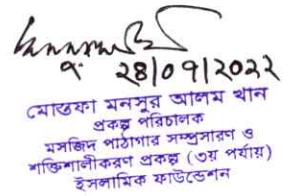 ২৪|০৭|২০২২
মোস্তফা মনসুর আলম খান
প্রকল্প পরিচালক
মসজিদ পাঠাগার সম্প্রসারণ ও
শক্তিশালীকরণ প্রকল্প (৩য় পর্যায়)
ইসলামিক ফাউন্ডেশন